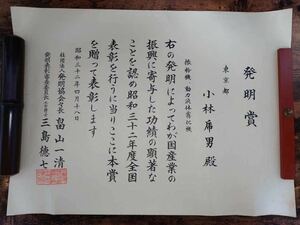 発明賞
東京都
小林席男殿
振粉機
右の発明によってわが国産業の
振興に寄与した功績の顕著な
ことを認め昭和三十二年度全国
表彰を行うに当りここに本賞
を贈って表彰します
昭和三十二年四月十八日
社団法人発明協会会長 畠山一清
三島徳七